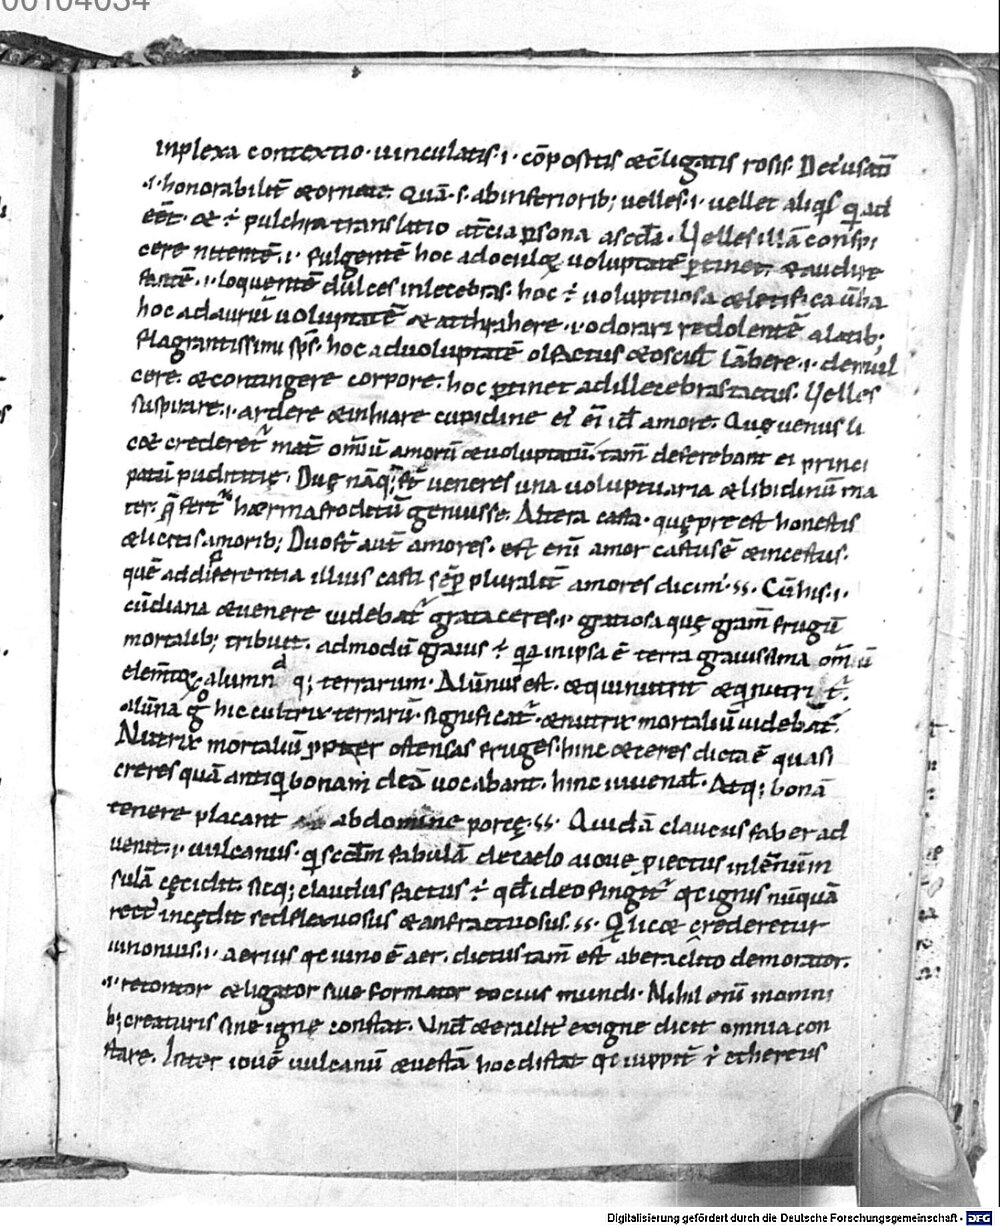 00104034
inplexa contextio· uinculatis· i· cōpositis & cōligatis rosis. Decusatī
·i· honorabilit̄ & ornate. Quā· s· ab inferiorib; uelles· i· uellet aliq̇s q̇ ad
eēt· & ÷ pulchra translatio at̄cia p̱sona ascd̄a· Uelles illā conspi
cere nitentē· i· fulgentē hoc ad oculoꝝ uoluptatē p̱tinet. & audire
fantē· i· loquentē dulces inlecebras· hoc ÷ uoluptuosa & letifica ūba
hoc ad auriū uoluptatē & atthrahere· i· odorari redolentē alatib;
flagrantissimi sp̄s· hoc ad uoluptatē olfactus & oscul̄ lābere· i· demul
cere· & contingere corpore· hoc p̱tinet ad illecebras tactus. Uelles
suspirare· i· ardere & inhiare cupidine ei ēi id̄ amore. Quę uenus li
c& crederet᷑ mat̄ om̄iū amorū & uoluptatū· tam̄ deferebant ei princi
patū pudicitię. Duę nāq; st̄ ueneres una uoluptuaria & libidinū ma
ter· q̄ fert᷑ hærmafroditū genuisse. Altera casta· quę pre est honestis
& licitis amorib; Duo st̄ aut̄ amores· est eni amor castus ē & incestus·
quē ad differentia illius casti sēp̱ pluralit̄ amores dicim᷑· ss· Cū his· i·
cū diana & uenere uidebat᷑ grata ceres· i· gratiosa quę gram̄ frugū
mortalib; tribuit· admodū grauis ÷ q̇a in ipsa ē terra grauissima om̄iū
elem̄toꝝ, alumn q; terrarum· Alūnus est· & qui nutrit & q̇ nutrit᷑.
alūna g° hic cultrix terrarū· significat᷑· & nutrix mortaliū uidebat᷑
Nutrix mortaliū propter ostensas fruges· hinc & ceres dicta ē quasi
creres quā antiq̇ bonam deā uocabant· hinc iuuenal̄· Atq; bonā
tenere placant abdomine porcę· ss· Quidā claudus faber ad
uenit· i· uulcanus· q̇ scd̄m fabulā de caelo a ioue p̱iectus in lēnum in
sulā cęcidit. sicq; claudus factus ÷ qd̄ ideo fingit᷑ qc ignis nūquā
rect̄ incędit sed flexuosus & anfractuosus· ss· Q̇ lic& crederetur
iunonius· i· aerius qc iuno ē aer· dictus tam̄ est ab eraclito demorator.
·i· retontor & ligator siue formator tocius mundi· Nihil eni in omni
b; creaturis sine ignę constat. Und̄ & eraclit᷑ ex igne dicit omnia con
stare. Inter iouē uulcanū & uestā hoc distat qc iuppit̄ ÷ ethereus
Digitalisierung gefördert durch die Deutsche Forschungsgemeinschaft - DFG